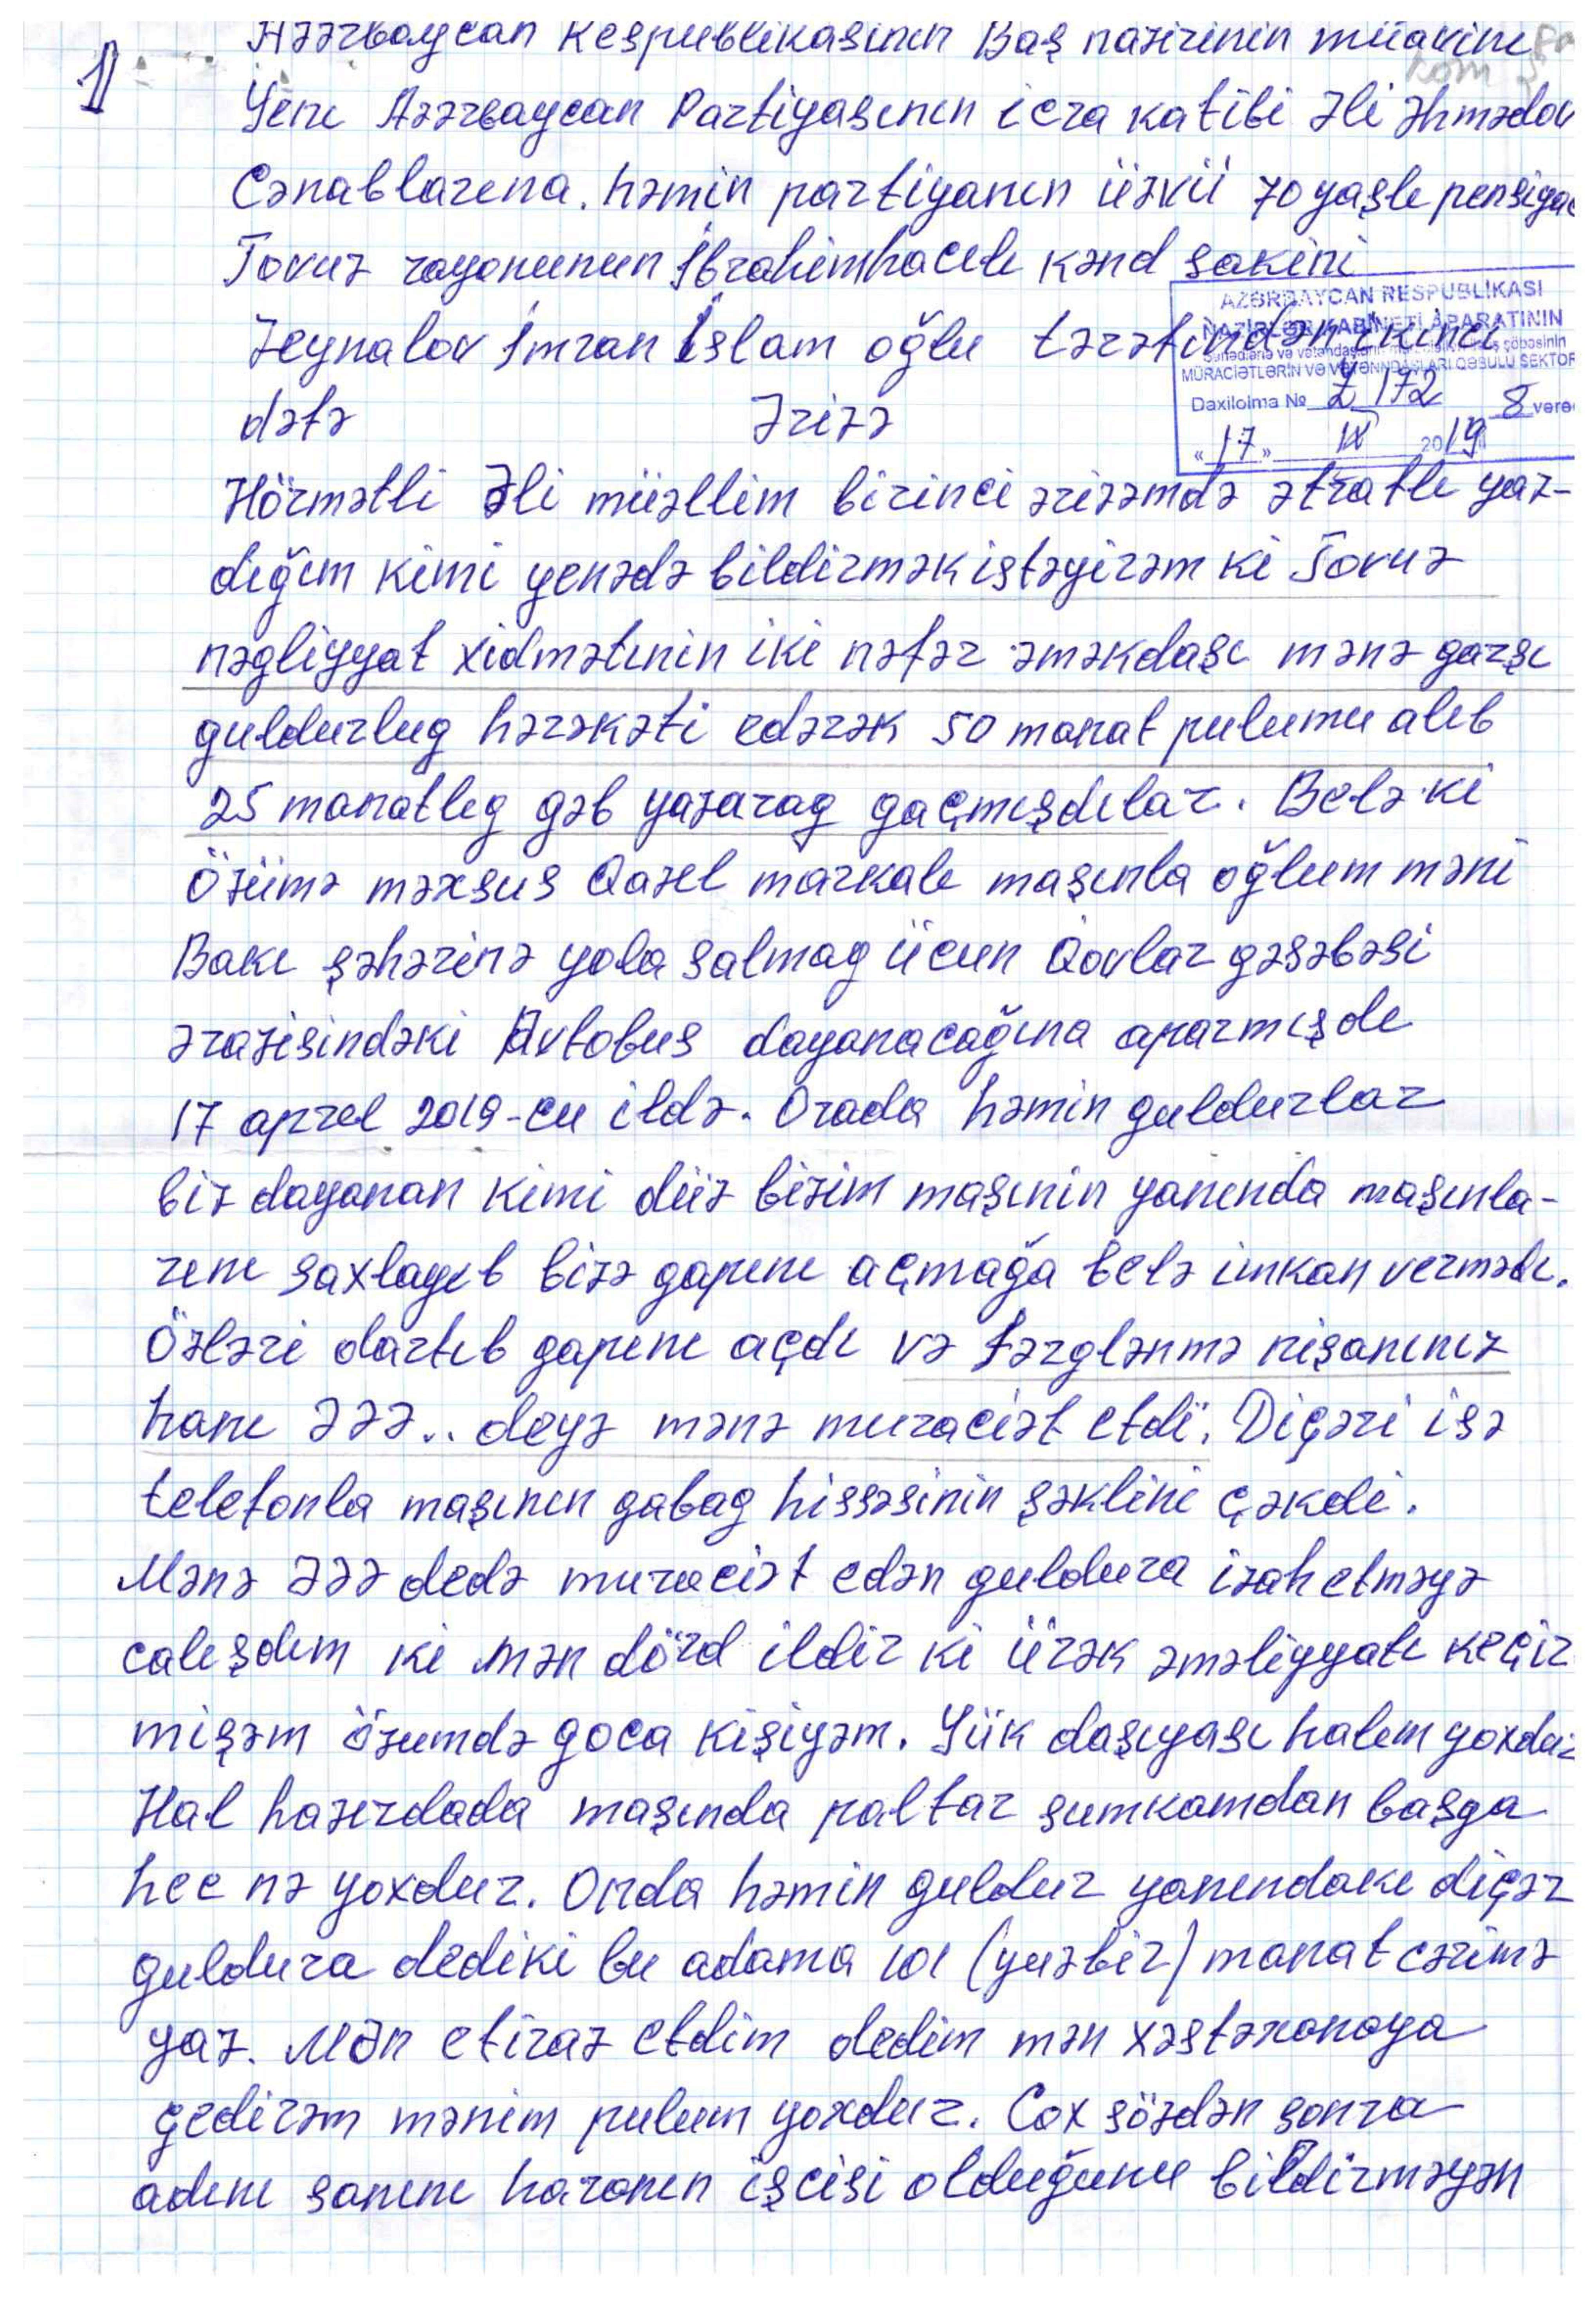 Azərbaycan Respublikasının Baş nazirinin müavini
1)
Yeni Azərbaycan Partiyasının icra katibi Əli Əhmədov
Cənablarına. həmin partiyanın üzvü 70 yaşlı pensiyaç
Tovuz rayonunun İbrahimhacılı kənd sakini
Zeynalov İmran İslam oğlu tərəfindən ikinci
dəfə Ərizə
AZƏRBAYCAN RESPUBLİKASI
NAZİRLƏR KABİNETİ APARATININ
MÜRACİƏTLƏRİN VƏ VƏTƏNNDAŞLARI QƏBULU SEKTOR
Daxilolma № Z 172 8 vərə
« 17 » IX 2019
Hörmətli Əli müəllim birinci ərizəmdə ətraflı yaz-
dığım kimi yenədə bildirmək istəyirəm ki Tovuz
nəgliyyat xidmətinin iki nəfər əməkdaşı mənə garşı
guldurlug hərəkəti edərək 50 manat pulumu alıb
25 manatlıg gəb yazarag gaçmışdılar. Belə ki
Özümə məxsus Qazel markalı maşınla oğlum məni
Bakı şəhərinə yola salmag ücun Qovlar gəsəbəsi
ərazisindəki Avtobus dayanacağına aparmışdı
17 aprel 2019-cu ildə. Orada həmin guldurlar
biz dayanan kimi düz bizim maşının yanında maşınla-
rını saxlayıb bizə gapını açmağa belə imkan vermədı.
Özləri dartıb gapını açdı və fərglənmə nişanınız
hanı əəə.. deyə mənə muraciət etdi. Digəri isə
telefonla maşının gabag hissəsinin şəklini çəkdi.
Mənə əəə dedə muraciət edən guldura izah etməyə
calışdım ki mən dörd ildir ki ürək əməliyyatı keçir
mişəm özumdə goca kişiyəm. Yük daşıyası halım yoxdur
Hal hazırdada maşında paltar sumkamdan başga
hec nə yoxdur. Onda həmin guldur yanındakı digər
guldura dediki bu adama 101 (yuzbir) manat cərimə
yaz. Mən etiraz etdim dedim mən xəstəxanaya
gedirəm mənim pulum yoxdur. Cox sözdən sonra
adını sanını haranın işcisi olduğunu bildirməyən